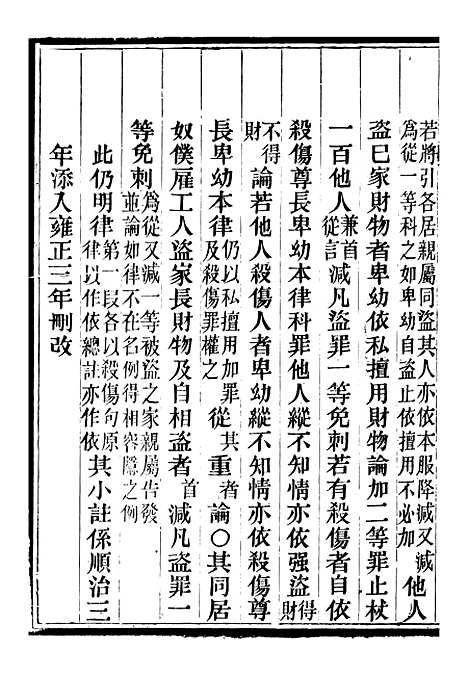 若將引各居親屬同盜其人亦依本服降減又減
爲從一等科之如卑幼自盜止依擅用不必加
他人
盜巳家財物者卑幼依私擅用財物論加二等罪止杖
一百他人兼首從言減凡盜罪一等免刺若有殺傷者自依
殺傷尊長卑幼本律科罪他人縱不知情亦依强盜得財
不得財論若他人殺傷人者卑幼縱不知情亦依殺傷尊
長卑幼本律仍以私擅用加罪及殺傷罪權之從其重者論○其同居
奴僕雇工人盜家長財物及自相盜者首減凡盜罪一
等免刺爲從又減一等被盜之家親屬告發並論如律不在名例得相容隱之例
此仍明律第一段各以殺傷句原律以作依總註亦作依其小註係順治三
年添入雍正三年刪改